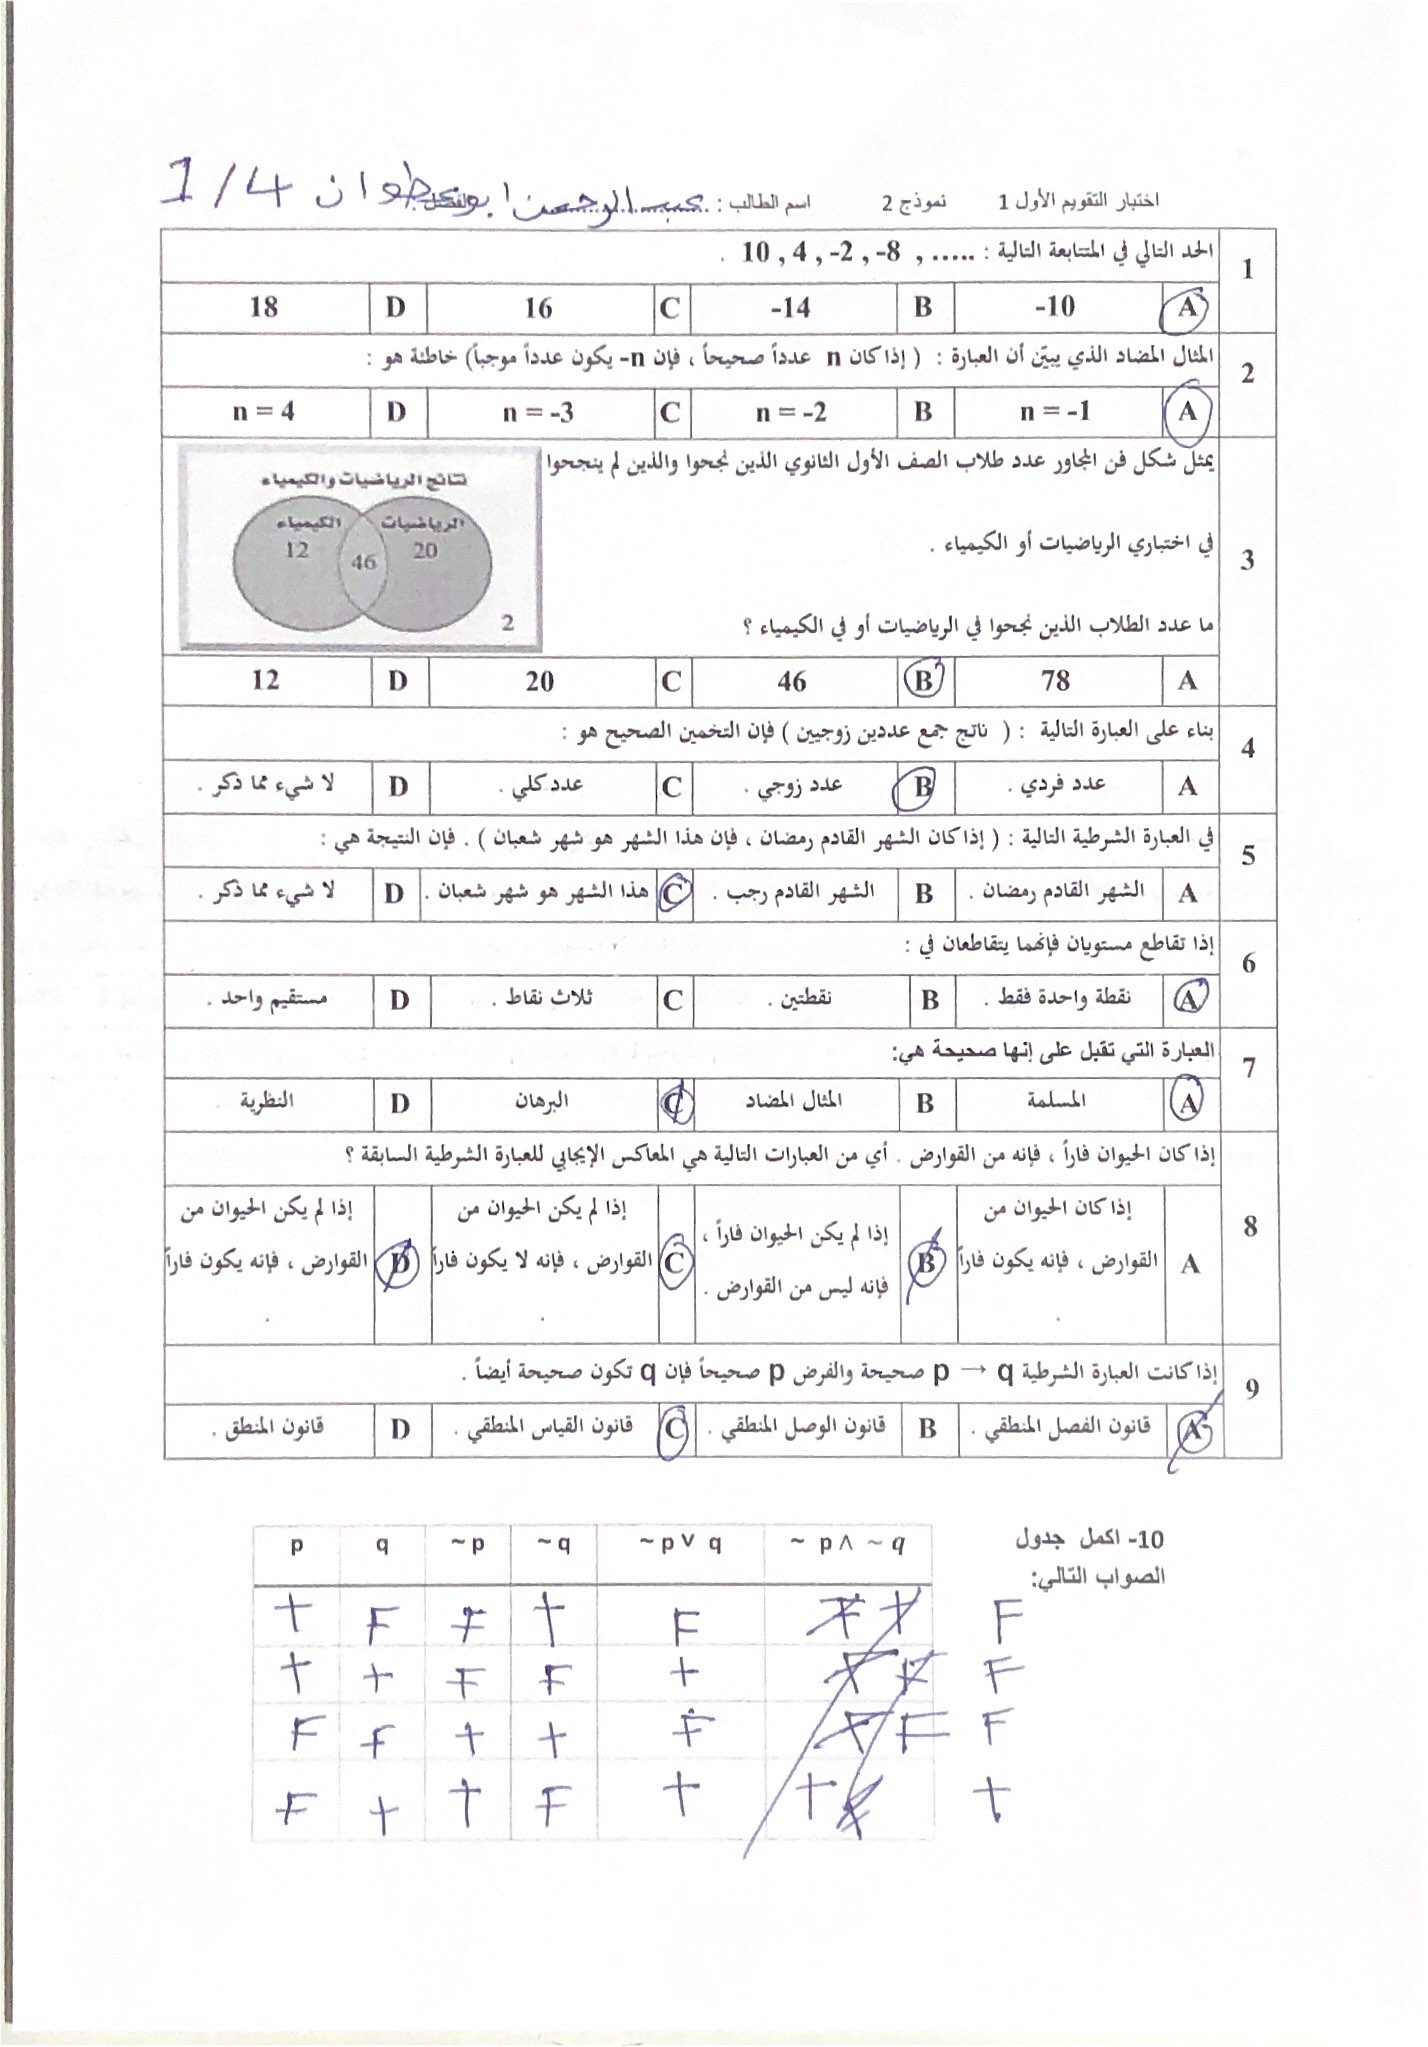 اختبار التقويم الأول 1 نموذج 2 اسم الطالب : عبد الرحمن ابو عطوان 1/4
1 الحد التالي في المتتابعة التالية : 10 , 4 , -2 , -8 , ..... .
A -10 B -14 C 16 D 18
2 المثال المضاد الذي يبيّن أن العبارة : ( إذا كان n عدداً صحيحاً ، فإن n- يكون عدداً موجباً) خاطئة هو :
A n = -1 B n = -2 C n = -3 D n = 4
3 يمثل شكل فن المجاور عدد طلاب الصف الأول الثانوي الذين نجحوا والذين لم ينجحوا
في اختباري الرياضيات أو الكيمياء .
ما عدد الطلاب الذين نجحوا في الرياضيات أو في الكيمياء ؟
نتائج الرياضيات والكيمياء
الرياضيات الكيمياء
20 46 12
2
A 78 B 46 C 20 D 12
4 بناء على العبارة التالية : ( ناتج جمع عددين زوجيين ) فإن التخمين الصحيح هو :
A عدد فردي . B عدد زوجي . C عدد كلي . D لا شيء مما ذكر .
5 في العبارة الشرطية التالية : ( إذا كان الشهر القادم رمضان ، فإن هذا الشهر هو شهر شعبان ) . فإن النتيجة هي :
A الشهر القادم رمضان . B الشهر القادم رجب . C هذا الشهر هو شهر شعبان . D لا شيء مما ذكر .
6 إذا تقاطع مستويان فإنهما يتقاطعان في :
A نقطة واحدة فقط . B نقطتين . C ثلاث نقاط . D مستقيم واحد .
7 العبارة التي تقبل على إنها صحيحة هي:
A المسلمة B المثال المضاد C البرهان D النظرية
8 إذا كان الحيوان فاراً ، فإنه من القوارض . أي من العبارات التالية هي المعاكس الإيجابي للعبارة الشرطية السابقة ؟
A إذا كان الحيوان من القوارض ، فإنه يكون فاراً .
B إذا لم يكن الحيوان فاراً ، فإنه ليس من القوارض .
C إذا لم يكن الحيوان من القوارض ، فإنه لا يكون فاراً .
D إذا لم يكن الحيوان من القوارض ، فإنه يكون فاراً .
9 إذا كانت العبارة الشرطية p → q صحيحة والفرض p صحيحاً فإن q تكون صحيحة أيضاً .
A قانون الفصل المنطقي . B قانون الوصل المنطقي . C قانون القياس المنطقي . D قانون المنطق .
10- اكمل جدول
الصواب التالي:
p q ~p ~q ~p∨ q ~ p∧ ~q
T F F T F F
T T F F T F
F F T T F F F
F T T F T T T